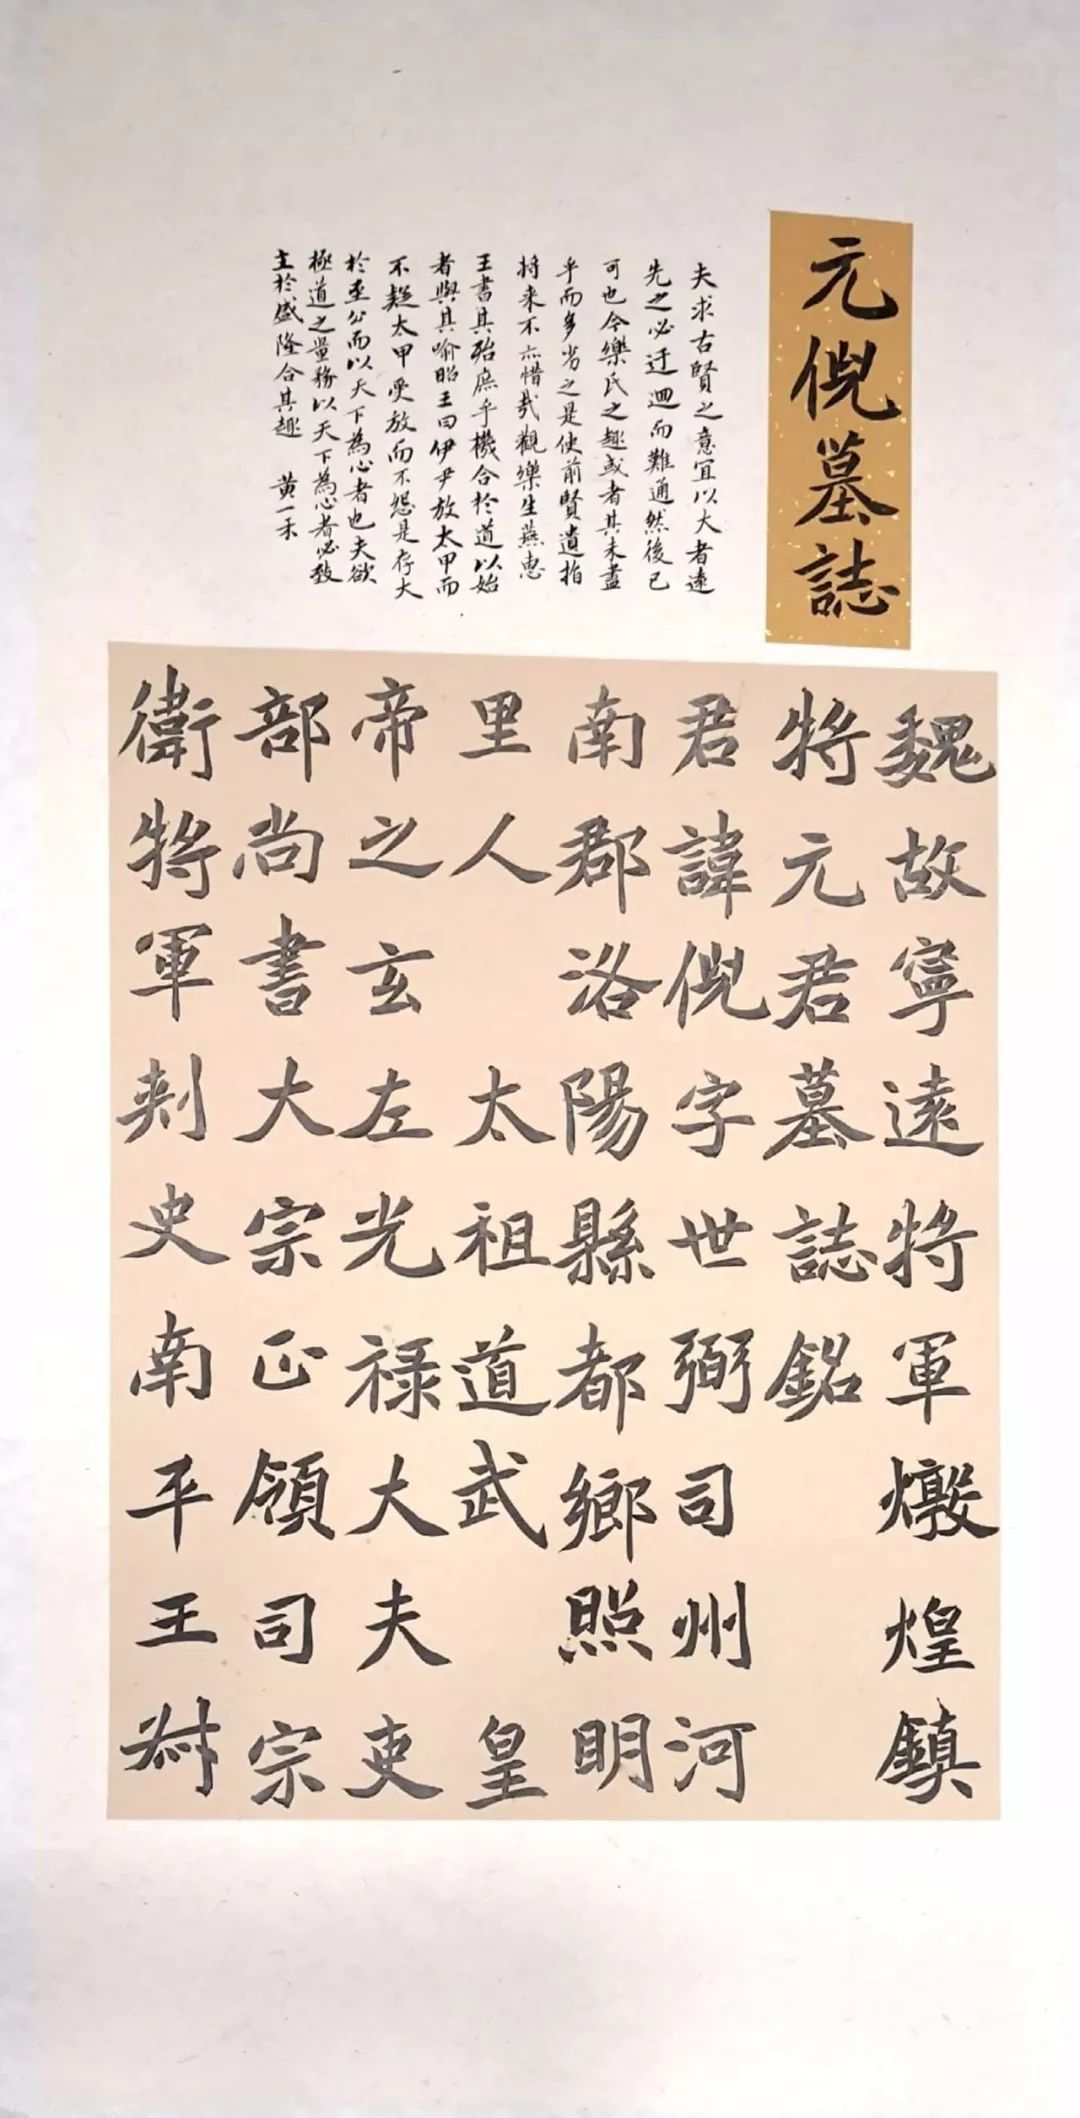 元倪墓誌
夫求古賢之意宜以大者遠
先之必迂迴而難通然後已
可也今樂氏之趣或者其未盡
乎而多劣之是使前賢遺指
将来不亦惜哉觀樂生燕惠
王書其殆庶乎機合於道以始
者與其喻昭王曰伊尹放太甲而
不疑太甲受放而不怨是存大
於至公而以天下為心者也夫欲
極道之量務以天下為心者必致
主於盛隆合其趣 黄一禾
魏故寧遠将軍燉煌鎮
将元君墓誌銘
君諱倪字世弼司州河
南郡洛陽縣都鄉照明
里人 太祖道武 皇
帝之玄左光禄大夫吏
部尚書大宗正領司宗
衛将軍刾史南平王